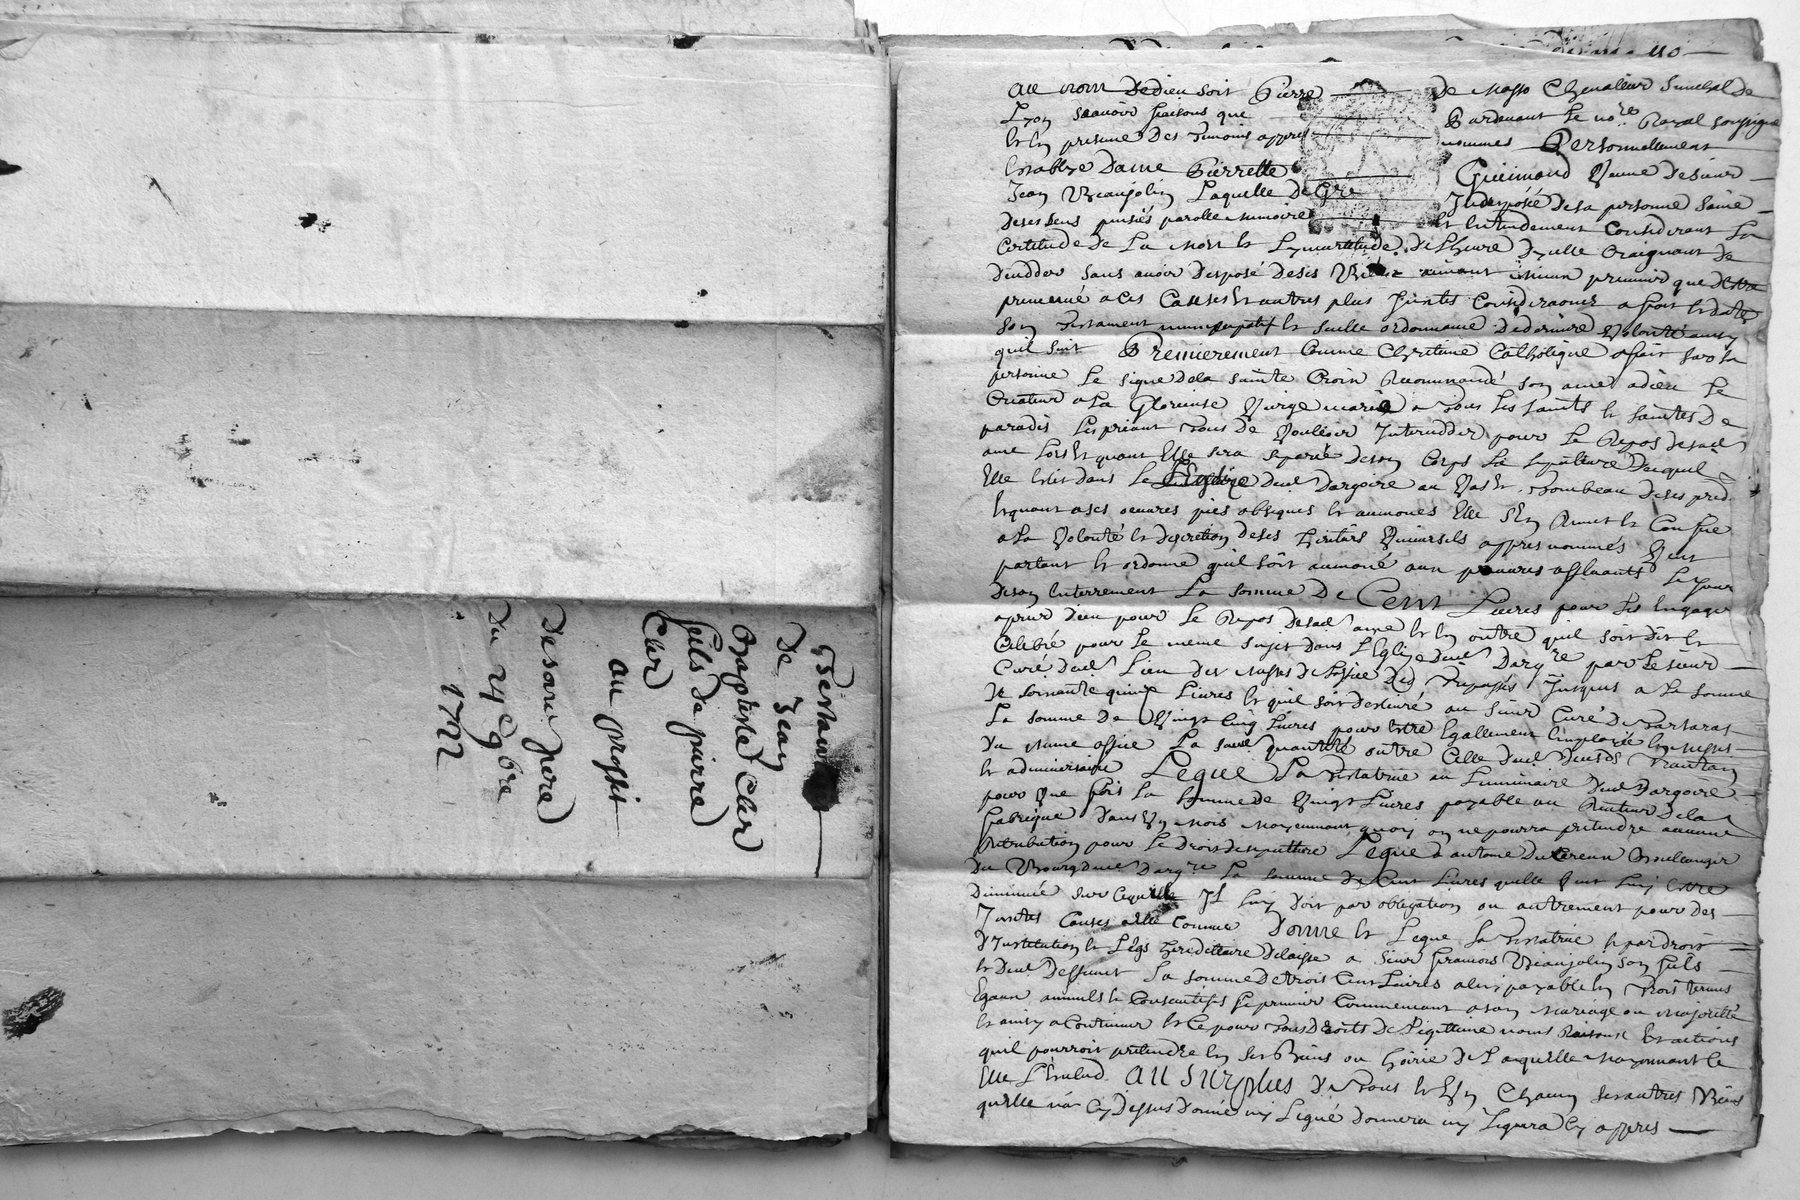 Testament
De Jean
Baptiste Clar
fils de pierre
Clar
au proffit
De son pere
Du 24e 9bre
1722
Au nom de dieu soit Pierre de Masso Chevallier Senechal de
Lyon scavoir faisons que Pardevant le nore Royal soussigné
et en presence des temoins appres nommes Personnellement
Establye Dame Pierrette Guimond Veuve de sieur
Jean Beaujolin Laquelle de Gre Indisposée de sa personne saine
de ses sens puisiés parolle memoire et Entendement Considerant la
Certitude de La Mort et de Lheure dycelle Craignant de
deceder sans avoir disposé de ses Biens aimant mieux premier que destre
a ces Causes et autres plus Justes Considerations a fait et datte
son Testament nuncupatif et seulle ordonnance de derniere Volonté ainsy
quil suit Premierement comme Chretienne Catholique a fait sur sa
personne Le signe de la sainte Croix Recommandé son ame a dieu Le
Createur a La Glorieuse Vierge marie a tous les saints et saintes de
paradis Les priant tous de Vouloir Interceder pour Le Repos de sad
ame Lors et quant Elle sera separée de son Corps La sepulture duquel
Elle Eslit dans Le LEglize dud Dargoire au Vas et Tombeau de ses pred
Et quant a ses oeuvres pies obseques et aumones Elle sEn Remet et Confie
a La Volonté et discretion de ses heritiers Universels appres nommés Veut
partant et ordonne quil soit aumoné aux pauvres affluants Le Jour
de son Enterrement La somme De Cent Livres pour Les Engager
a prier dieu pour Le Repos de sad ame et En outre quil soit dit et
Celebré pour Le meme sujet dans LEglize dud Dargre par Le sieur
Curé dud Lieu des Messes de loffice des Trepassés Jusques a La somme
De soixante quinze Livres et quil soit au sieur Curé de Tartaras
La somme De Vingt Cinq Livres pour Estre Egallement Employée En Messes
du meme office La quantité outre Celle dud
et adminersaire Legue La Testatrice au Luminaire dud Dargoire
pour Une fois La somme de Vingt Livres payable au Recteur de la
fabrique dans Un Mois Moyennant quoy on ne pourra pretendre aucune
Retribution pour Le droit de sepulture Legue a antoine Boulanger
du Bourg dud Dargre La somme de Cent Livres quelle Veut Luy Estre
Diminuée sur Ce quil Luy doit par obligation ou autrement pour des
Justes Causes a Elle Connue Donne et Legue La Testatrice et par droit
dInstitution et Legs hereditaire delaisse a sieur francois Beaujolin son fils
et dud Deffunt La somme de trois Cent Livres a luy payable En Trois termes
Egaux annuels et Consecutifs Le premier Commencant a son Mariage ou Majorité
et ainsy a Continuer et Ce pour tous droits de Legitime noms Raisons Et actions
quil pourroit pretendre En ses Biens ou hoirie De Laquelle Moyennant Ce
Elle LExclud Au Surplus De Tous Et Un Chacun ses autres Biens
quelle na Cy Dessus donné ny Legué donnera ny Leguera Cy appres